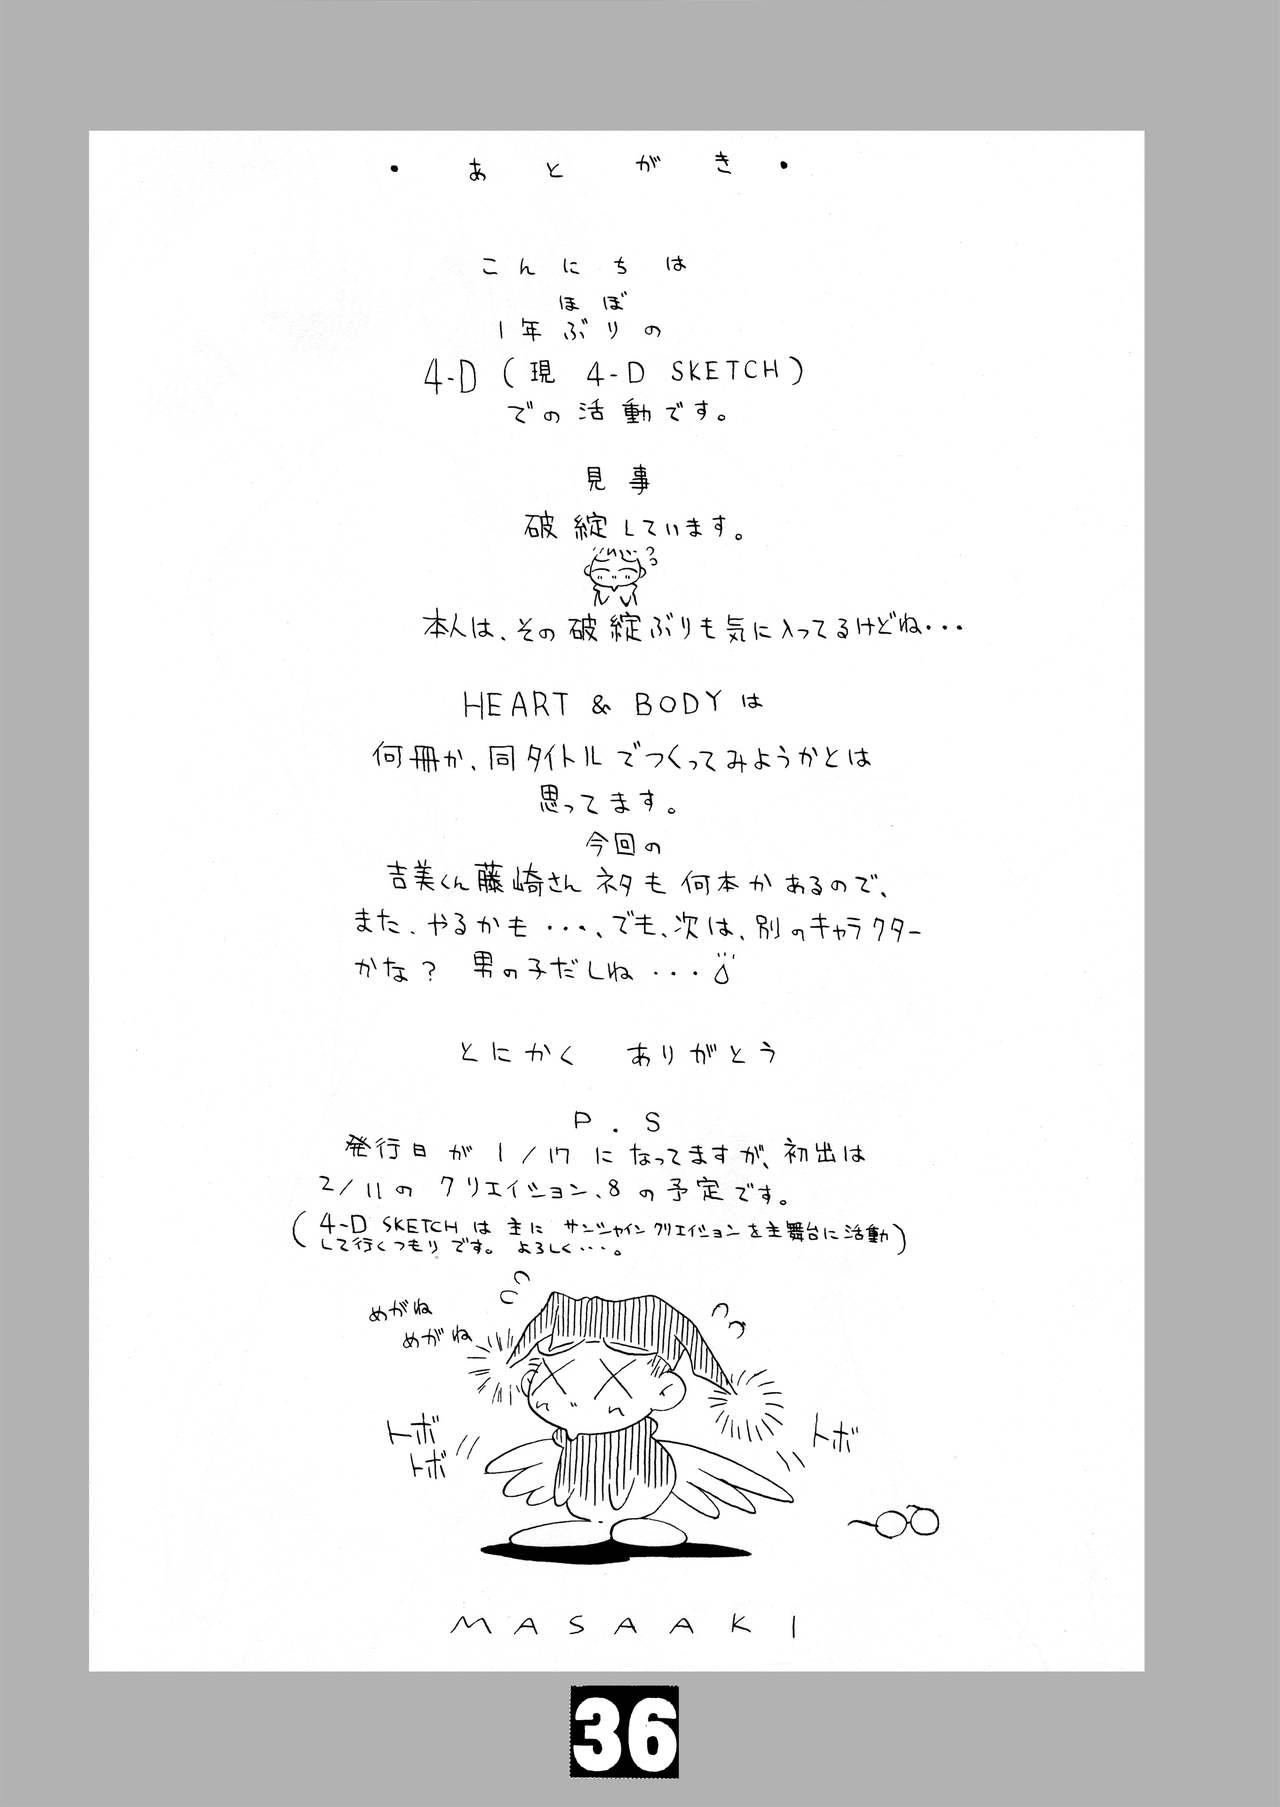 ・ あとがき ・
こんにちは
ほぼ
1年ぶりの
4-D (現 4-D SKETCH)
での活動です。
見事
破綻しています。
本人は、その破綻ぶりも気に入ってるけどね・・・
HEART & BODY は
何冊か、同タイトルでつくってみようかとは
思ってます。
今回の
吉美くん藤崎さんネタも何本かあるので、
また、やるかも・・・、でも、次は、別のキャラクター
かな? 男の子だしね・・・
とにかく ありがとう
P.S
発行日が 1/17 になってますが、初出は
2/11の クリエイション、8 の予定です。
(4-D SKETCH は 主に サンシャインクリエイションを主舞台に活動
して行くつもりです。 よろしく・・・。)
めがね
めがね
トボ
トボ
トボ
MASAAKI
36